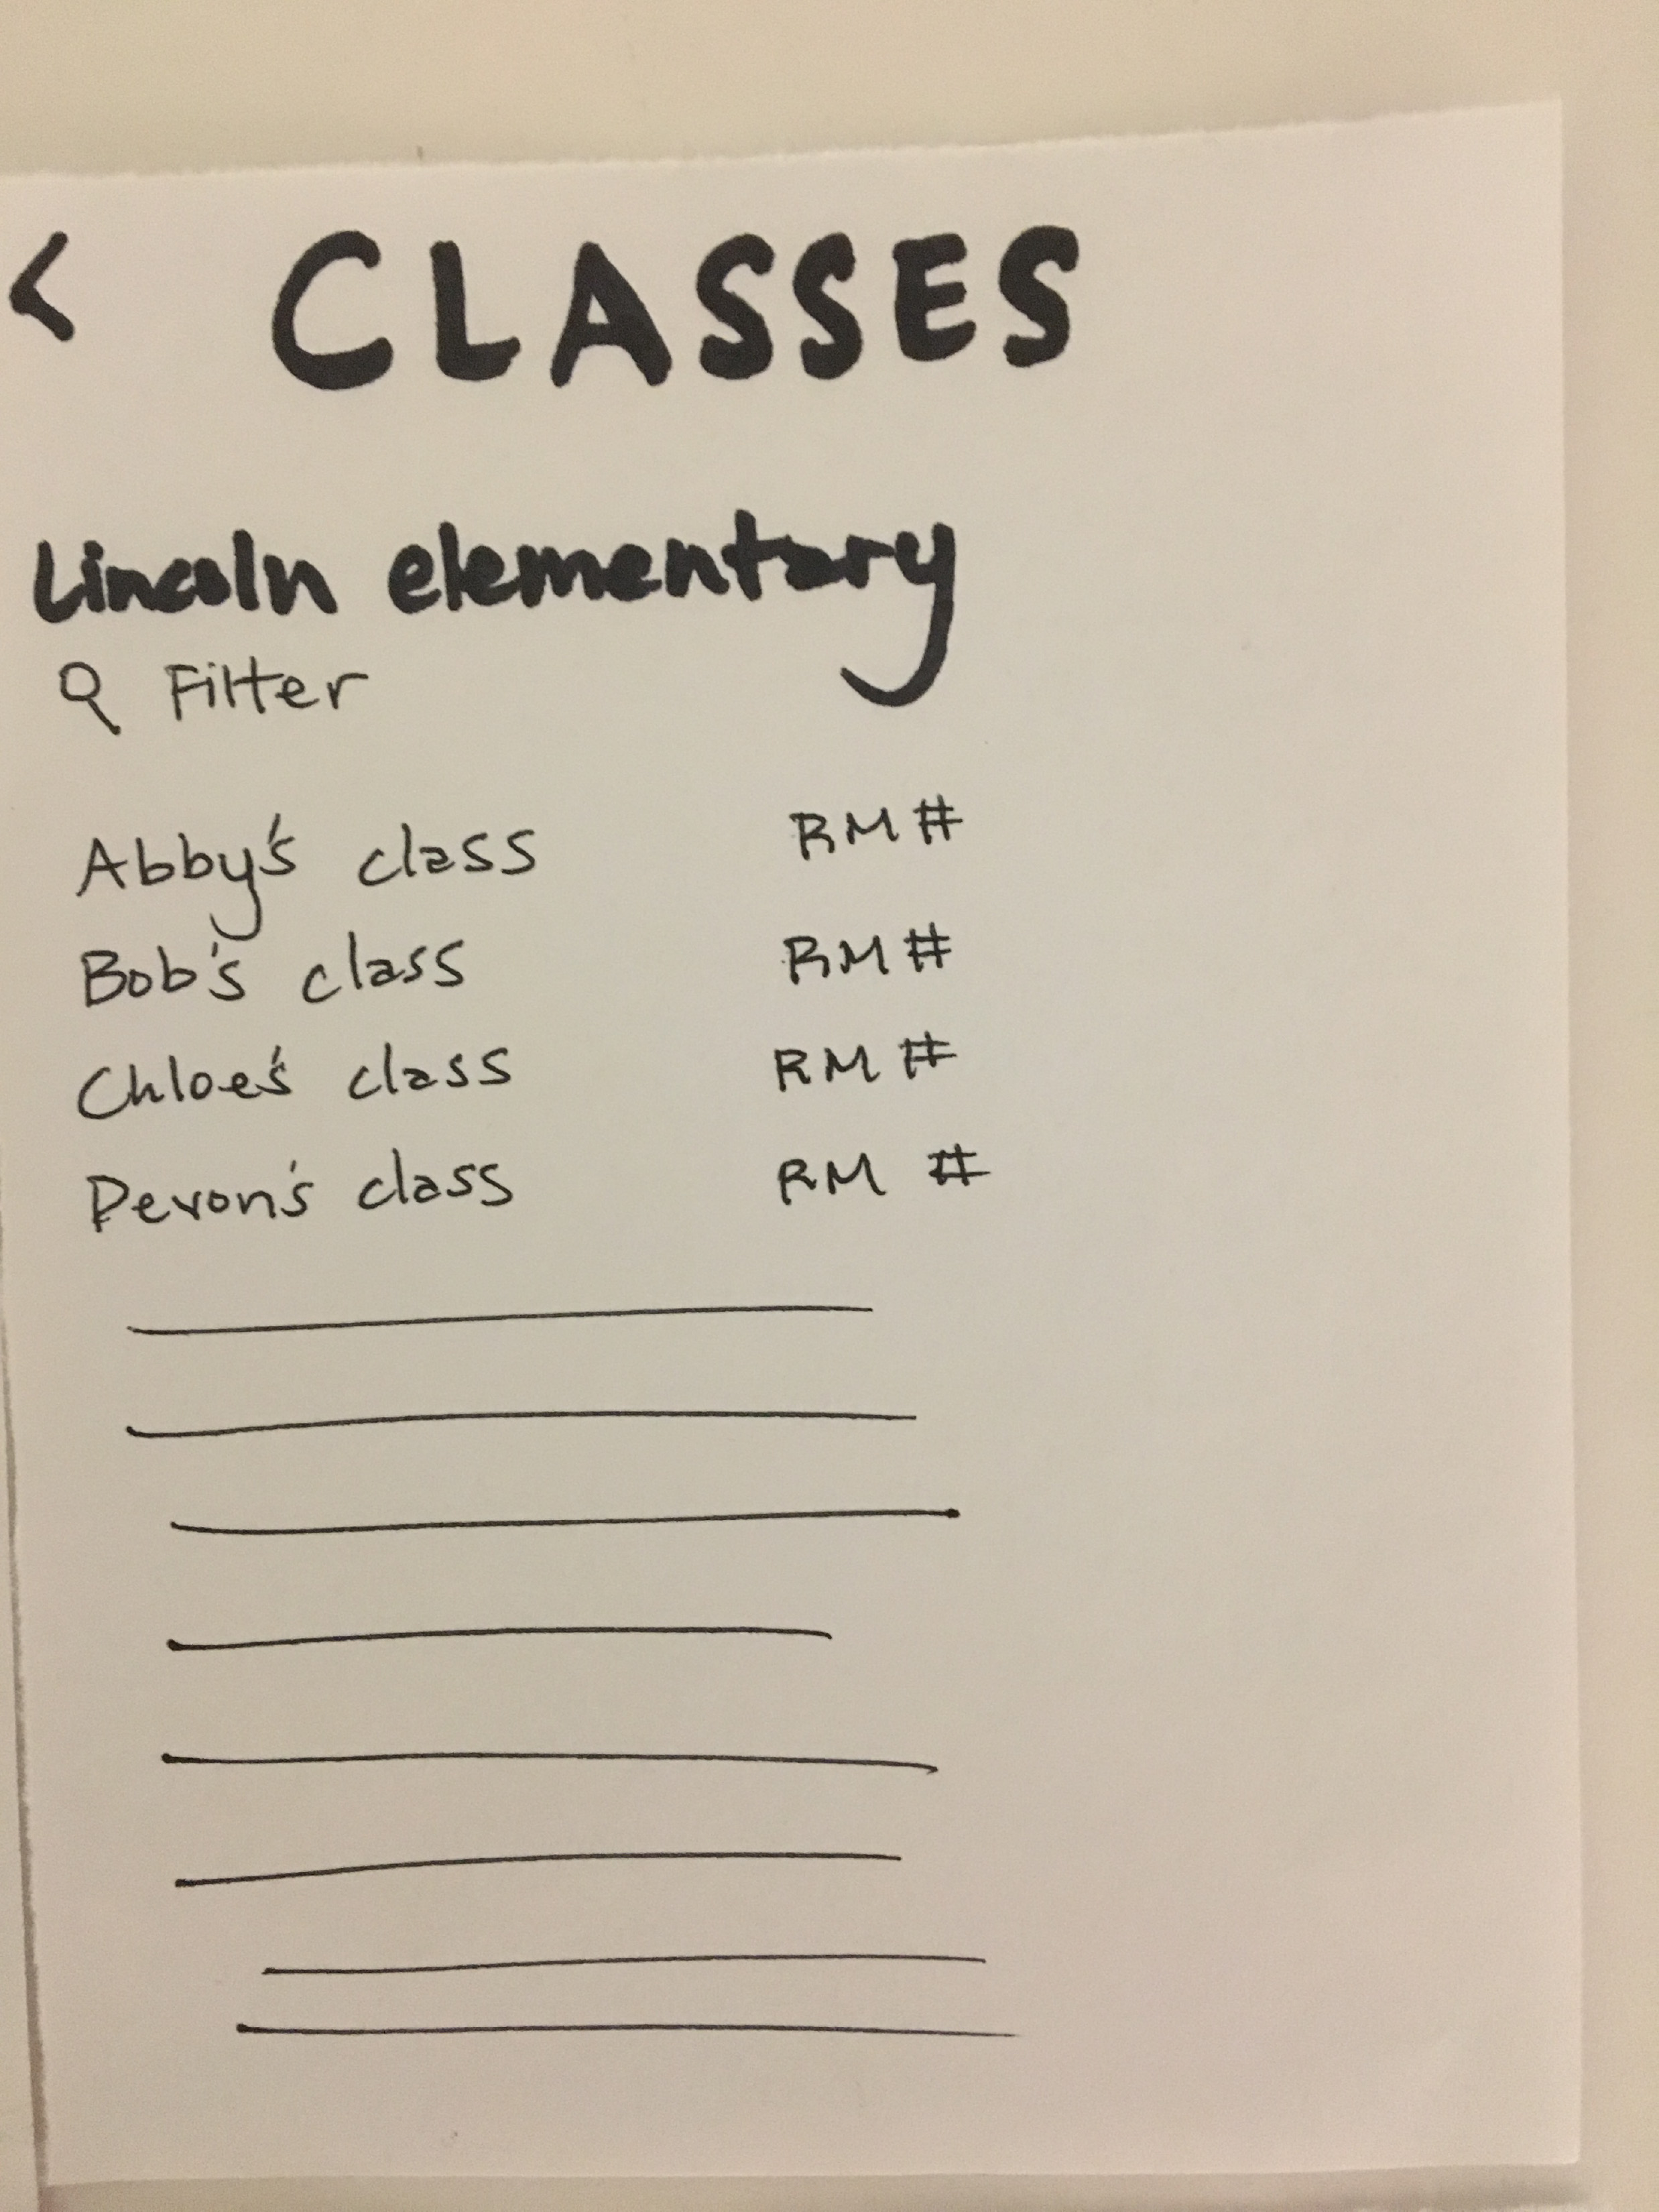 < CLASSES
Lincoln elementary
Filter
Abby's class RM #
Bob's class RM #
Chloe's class RM #
Devon's class RM #